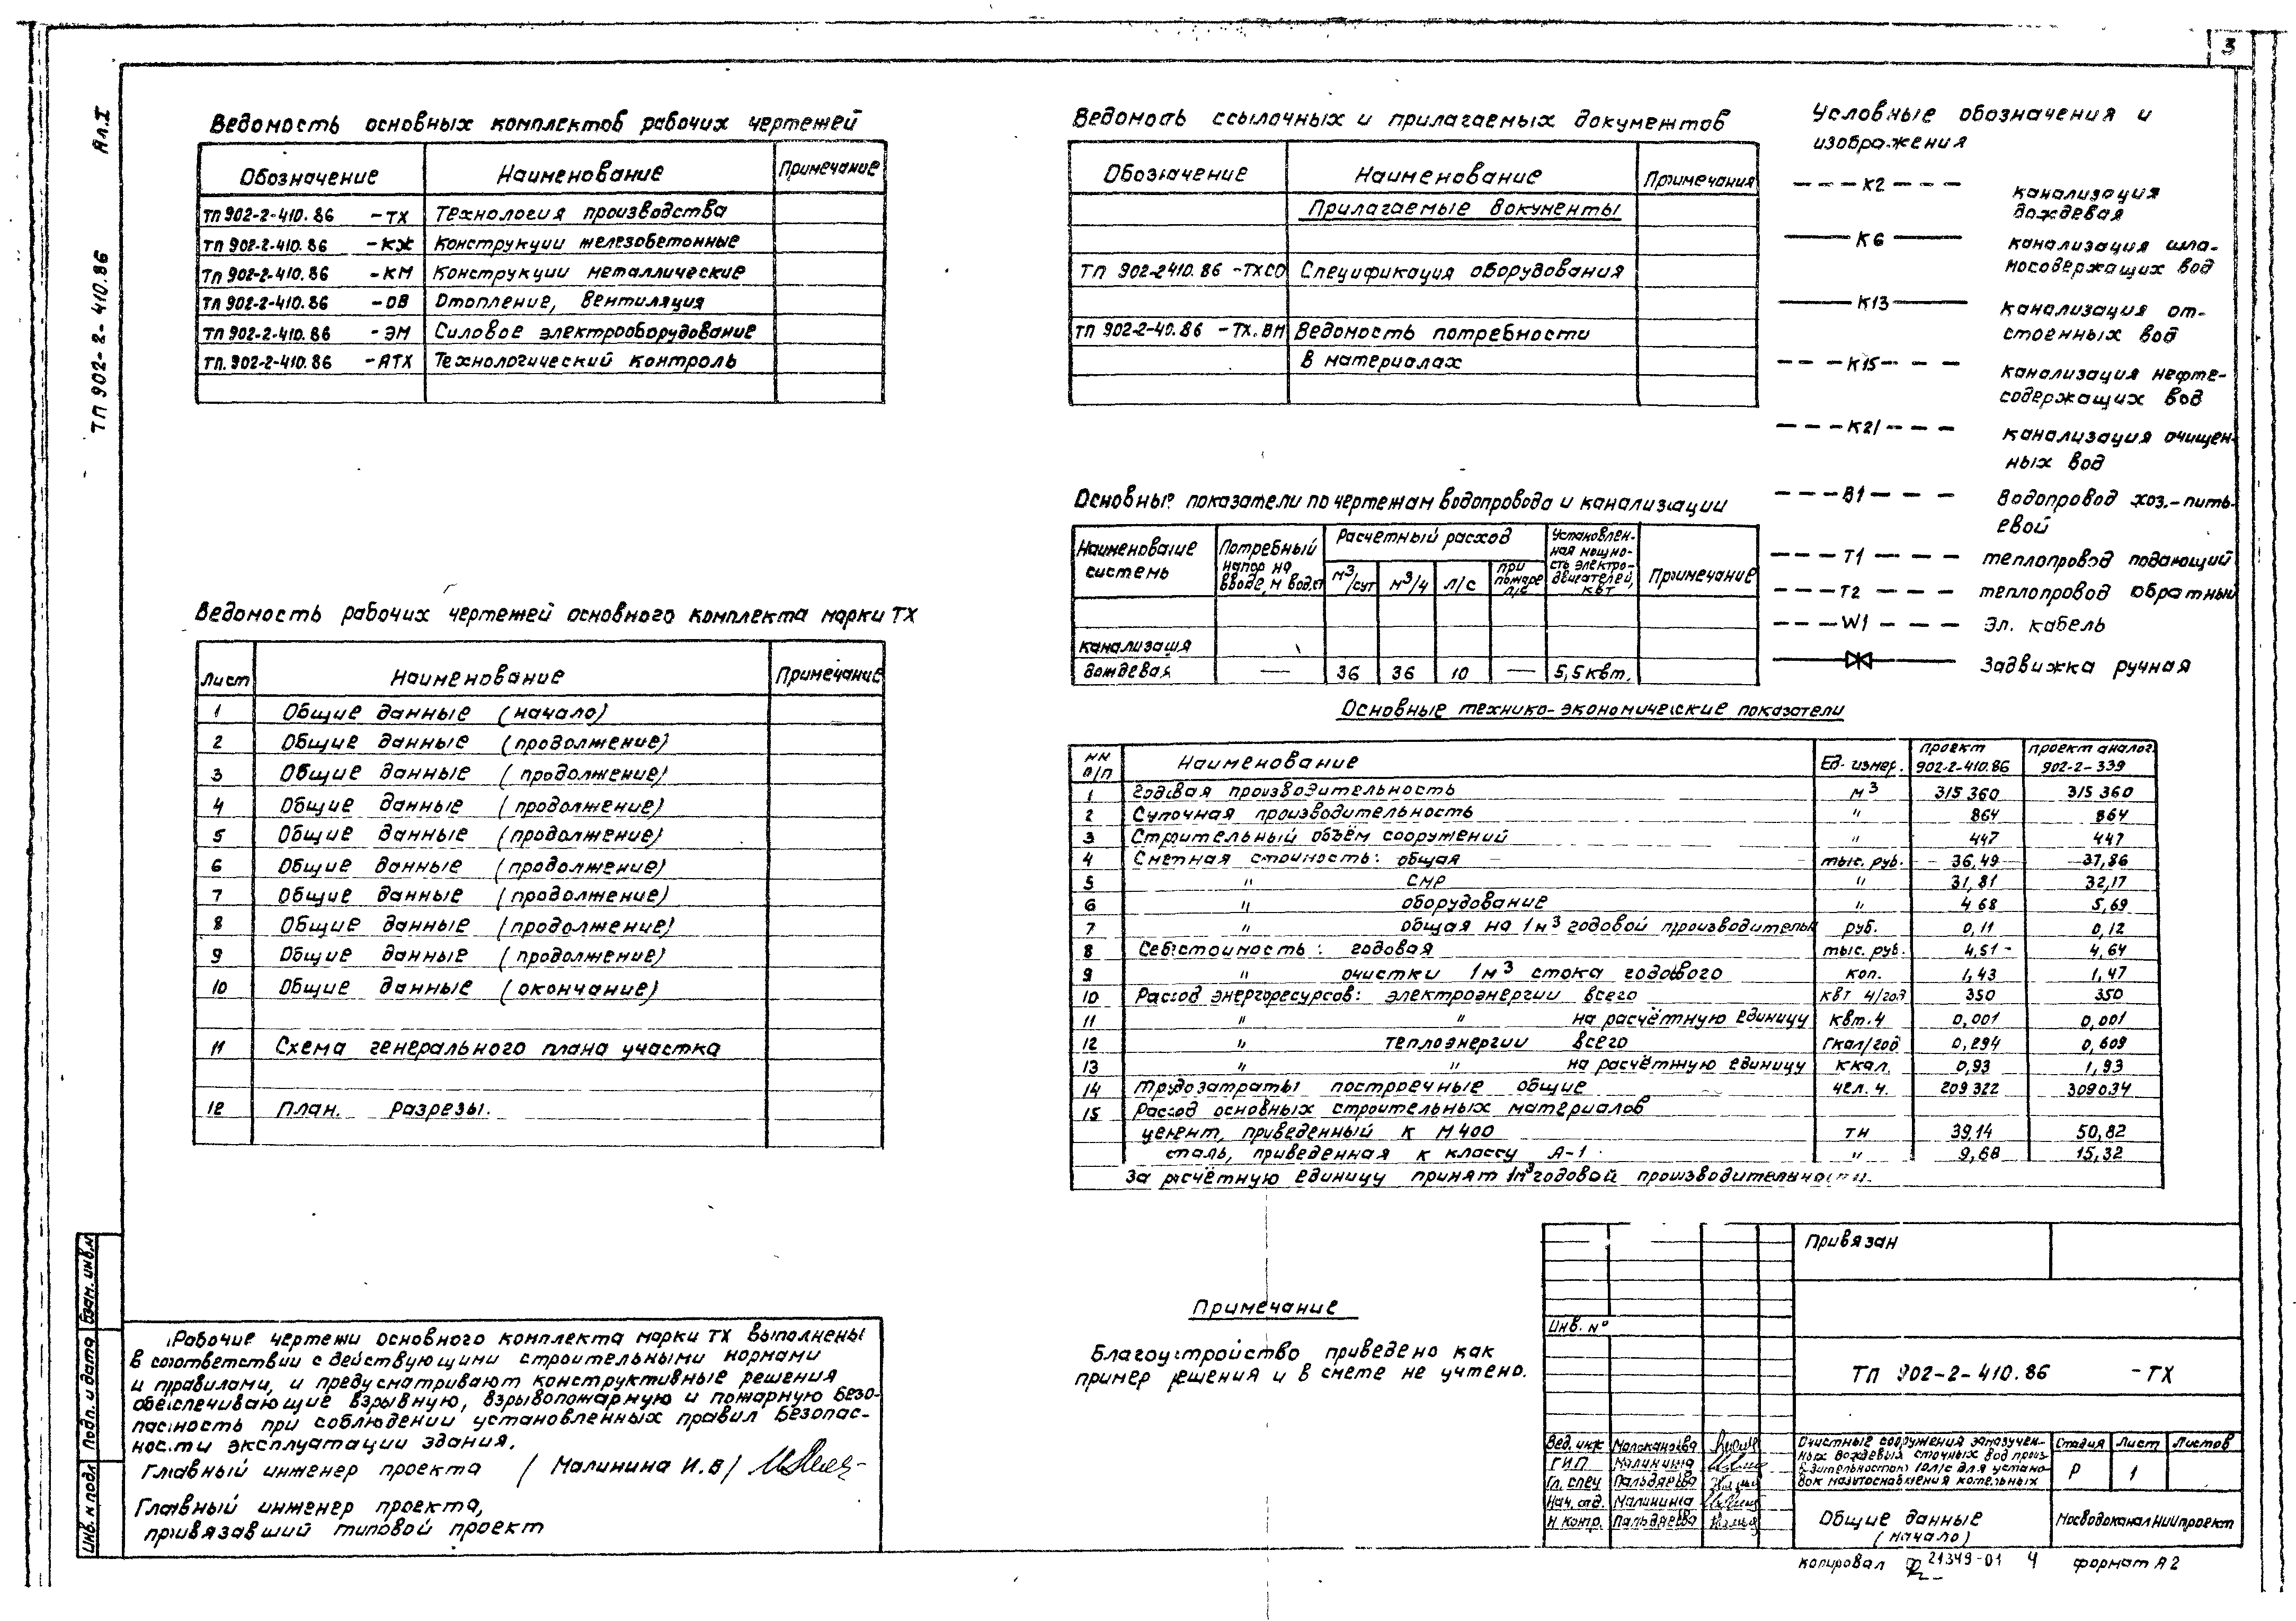 3
Ал.I
ТП 902-2-410.86
Ведомость основных комплектов рабочих чертежей
Обозначение Наименование Примечание
ТП 902-2-410.86 -ТХ Технология производства
ТП 902-2-410.86 -КЖ Конструкции железобетонные
ТП 902-2-410.86 -КМ Конструкции металлические
ТП 902-2-410.86 -ОВ Отопление, вентиляция
ТП 902-2-410.86 -ЭМ Силовое электрооборудование
ТП. 902-2-410.86 -АТХ Технологический контроль
Ведомость рабочих чертежей основного комплекта марки ТХ
Лист Наименование Примечание
1 Общие данные (начало)
2 Общие данные (продолжение)
3 Общие данные (продолжение)
4 Общие данные (продолжение)
5 Общие данные (продолжение)
6 Общие данные (продолжение)
7 Общие данные (продолжение)
8 Общие данные (продолжение)
9 Общие данные (продолжение)
10 Общие данные (окончание)
11 Схема генерального плана участка
12 План. Разрезы.
Рабочие чертежи основного комплекта марки ТХ выполнены
в соответствии с действующими строительными нормами
и правилами, и предусматривают конструктивные решения
обеспечивающие взрывную, взрывопожарную и пожарную безо-
пасность при соблюдении установленных правил безопас-
ности эксплуатации здания.
Главный инженер проекта (Малинина И.В)
Главный инженер проекта,
привязавший типовой проект
Ведомость ссылочных и прилагаемых документов
Обозначение Наименование Примечания
Прилагаемые документы
ТП 902-2410.86 -ТХСО Спецификация оборудования
ТП 902-2-40.86 -ТХ.ВМ Ведомость потребности
в материалах
Основные показатели по чертежам водопровода и канализации
Наименование системы Потребный напор на вводе, м вод.ст Расчетный расход Установлен-ная мощно-сть электро-двигателей, квт Примечание
м³/сут м³/ч л/с при пожаре л/с
канализация
дождевая — 36 36 10 — 5,5 квт.
Основные технико-экономические показатели
NN п/п Наименование Ед. измер. проект 902-2-410.86 проект аналог. 902-2-339
1 Годовая производительность м³ 315 360 315 360
2 Суточная производительность " 864 864
3 Строительный объём сооружений " 447 447
4 Сметная стоимость: общая тыс. руб. 36,49 37,86
5 " СМР " 31,81 32,17
6 " оборудование " 4,68 5,69
7 " общая на 1м³ годовой производительн руб. 0,11 0,12
8 Себестоимость: годовая тыс. руб. 4,51 4,64
9 " очистки 1м³ стока годового коп. 1,43 1,47
10 Расход энергоресурсов: электроэнергии всего квт ч/год 350 350
11 " " на расчётную единицу квт.ч 0,001 0,001
12 " теплоэнергии всего Гкал/год 0,294 0,609
13 " " на расчётную единицу ккал. 0,93 1,93
14 Трудозатраты построечные общие чел. ч. 209322 309034
15 Расход основных строительных материалов
цемент, приведенный к М400 тн 39,14 50,82
сталь, приведенная к классу А-1 " 9,68 15,32
За расчётную единицу принят 1м³ годовой производительности.
Условные обозначения и
изображения
К2 канализация
дождевая
К6 канализация шла-
мосодержащих вод
К13 канализация от-
стоенных вод
К15 канализация нефте-
содержащих вод
К21 канализация очищен-
ных вод
В1 водопровод хоз.-пить-
евой
Т1 теплопровод подающий
Т2 теплопровод обратный
W1 Эл. кабель
Задвижка ручная
Примечание
Благоустройство приведено как
пример решения и в смете не учтено.
Привязан
Инв. N°
ТП 902-2-410.86 -ТХ
Вед. инж Молоканова
ГИП Малинина
Гл. спец Пальдяева
Нач. отд. Малинина
Н контр. Пальдяева
Очистные сооружения замазучен-
ных дождевых сточных вод произ-
водительностью 10л/с для устано-
вок мазутоснабжения котельных
Стадия Лист Листов
Р 1
Общие данные
(начало)
МосводоканалНИИпроект
Копировал 21349-01 4 формат А2
Инв. N подл Подп. и дата Взам. инв. N